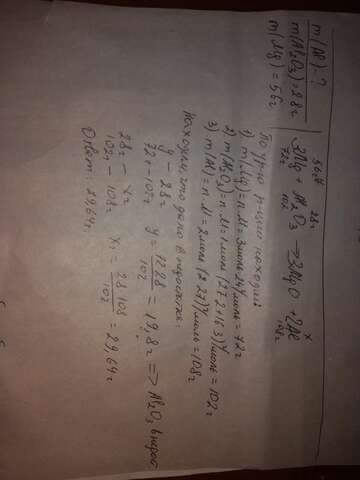 m(Mg) = 56г
m(Al₂O₃) = 28г
m(Al) - ?
56г 28г х
3Mg + Al₂O₃ → 3MgO + 2Al
72г 102 108г
По ур-ю р-ции находим
1) m(Mg) = n·M = 3моль·24г/моль = 72г
2) m(Al₂O₃) = n·M = 1моль·(27·2+16·3)г/моль = 102г
3) m(Al) = n·M = 2моль·(2·27)г/моль = 108г
Находим, что дано в недостатке:
у - 28г
72г - 102г у = 72·28/102 = 19,8г => Al₂O₃ в недос
28г - хг
102г - 108г х = 28·108/102 = 29,64г
Ответ: 29,64г.